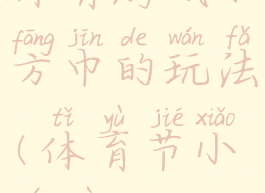 fāng jīn de wán fǎ
方巾的玩法
tǐ yù jié xiǎo
(体育节小